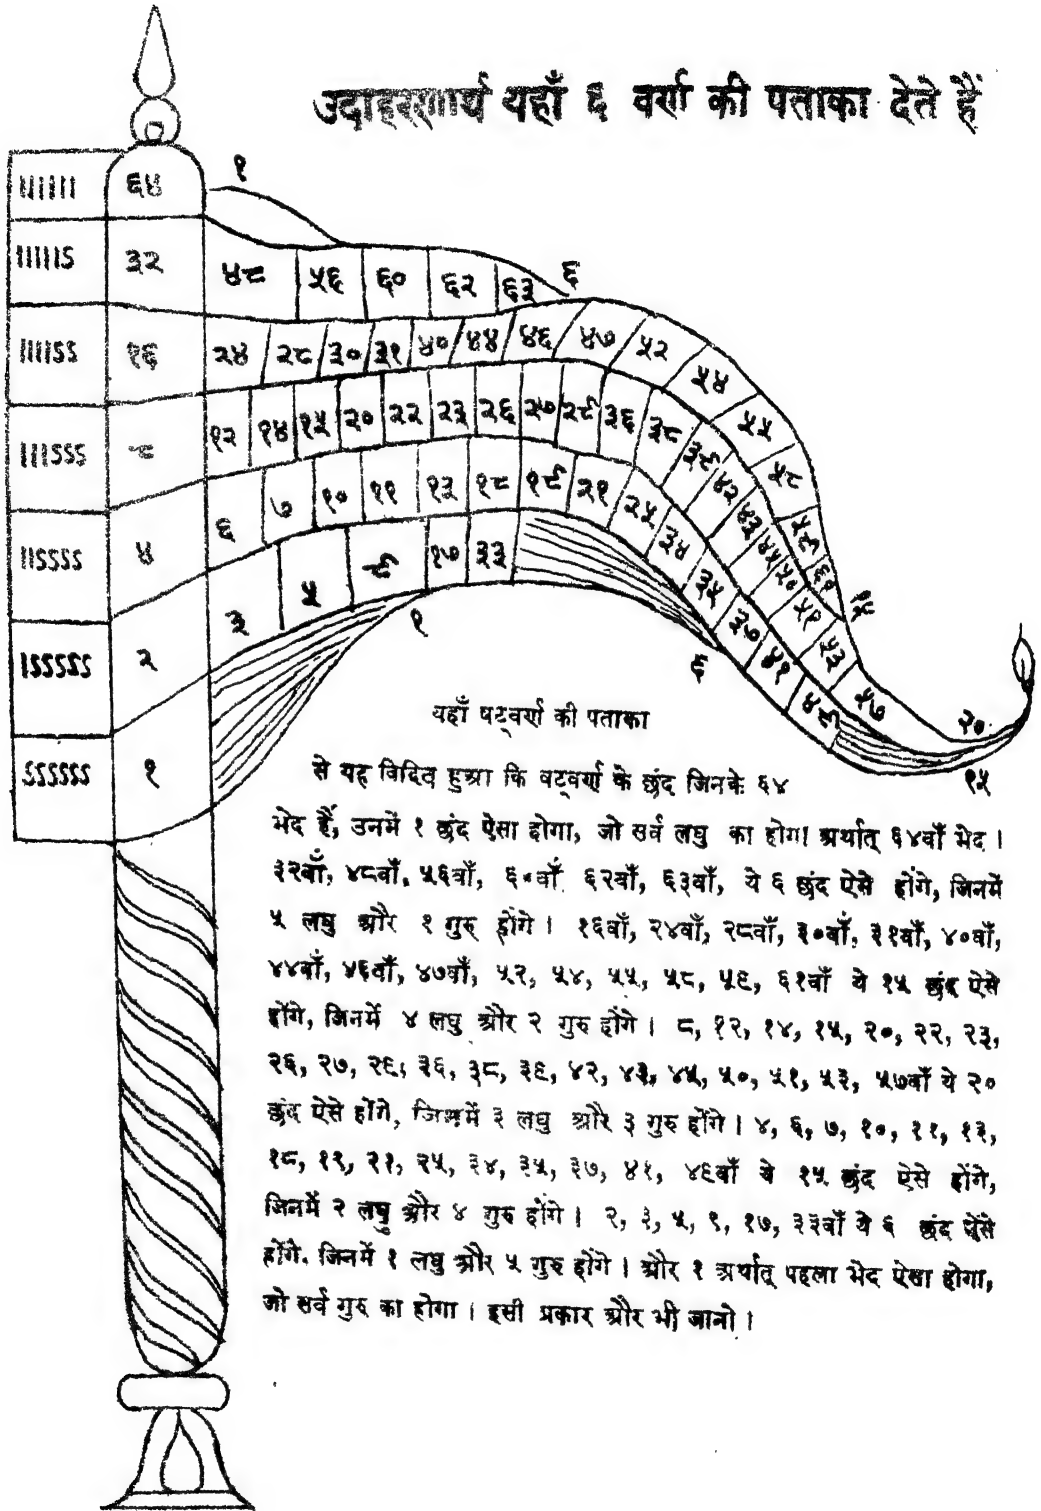 उदाहरणार्थ यहाँ ६ वर्ण की पताका देते हैं
१
।।।।।। ६४
।।।।।ऽ ३२ ४८ ५६ ६० ६२ ६३ ६
।।।।ऽऽ १६ २४ २८ ३० ३१ ४० ४४ ४६ ४७ ५२ ५४ ५५ ५८ ५९ ६१ १५
।।।ऽऽऽ ८ १२ १४ १५ २० २२ २३ २६ २७ २९ ३६ ३८ ३९ ४२ ४३ ४५ ५० ५१ ५३ ५७ २०
।।ऽऽऽऽ ४ ६ ७ १० ११ १३ १८ १९ २१ २५ ३४ ३५ ३७ ४१ ४९ १५
।ऽऽऽऽऽ २ ३ ५ ९ १७ ३३ ६
ऽऽऽऽऽऽ १ १
यहाँ षट्वर्ण की पताका
से यह विदित हुआ कि षट्वर्ण के छंद जिनके ६४
भेद हैं, उनमें १ छंद ऐसा होगा, जो सर्व लघु का होगा अर्थात् ६४वाँ भेद ।
३२वाँ, ४८वाँ, ५६वाँ, ६०वाँ ६२वाँ, ६३वाँ, ये ६ छंद ऐसे होंगे, जिनमें
५ लघु और १ गुरु होंगे । १६वाँ, २४वाँ, २८वाँ, ३०वाँ, ३१वाँ, ४०वाँ,
४४वाँ, ४६वाँ, ४७वाँ, ५२, ५४, ५५, ५८, ५९, ६१वाँ ये १५ छंद ऐसे
होंगे, जिनमें ४ लघु और २ गुरु होंगे । ८, १२, १४, १५, २०, २२, २३,
२६, २७, २९, ३६, ३८, ३९, ४२, ४३, ४५, ५०, ५१, ५३, ५७वाँ ये २०
छंद ऐसे होंगे, जिनमें ३ लघु और ३ गुरु होंगे । ४, ६, ७, १०, ११, १३,
१८, १९, २१, २५, ३४, ३५, ३७, ४१, ४९वाँ ये १५ छंद ऐसे होंगे,
जिनमें २ लघु और ४ गुरु होंगे । २, ३, ५, ९, १७, ३३वाँ ये ६ छंद ऐसे
होंगे. जिनमें १ लघु और ५ गुरु होंगे । और १ अर्थात् पहला भेद ऐसा होगा,
जो सर्व गुरु का होगा । इसी प्रकार और भी जानो ।